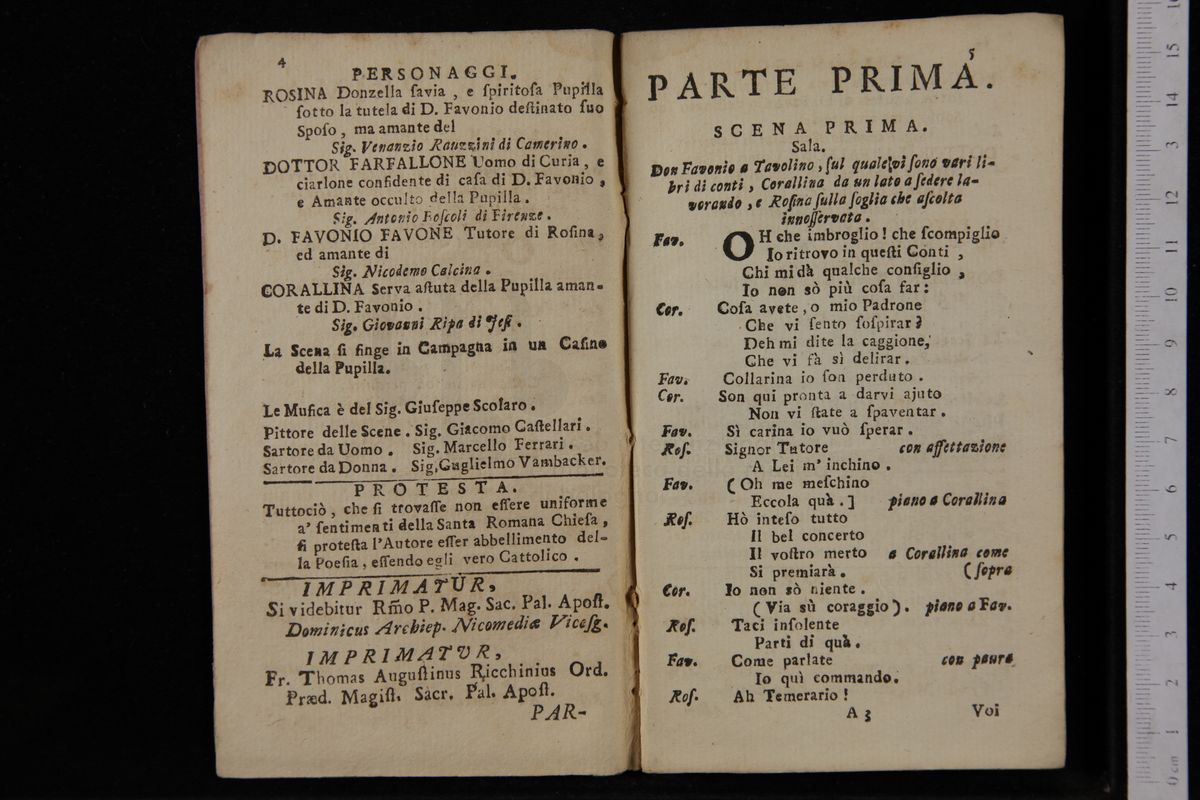 4
PERSONAGGI.
ROSINA Donzella ſavia , e ſpiritoſa Pupilla
ſotto la tutela di D. Favonio deſtinato ſuo
Spoſo , ma amante del
Sig. Venanzio Rauzzini di Camerino .
DOTTOR FARFALLONE Uomo di Curia , e
ciarlone confidente di caſa di D. Favonio ,
e Amante occulto della Pupilla .
Sig. Antonio Boſcoli di Firenze .
D. FAVONIO FAVONE Tutore di Roſina,
ed amante di
Sig. Nicodemo Calcina .
CORALLINA Serva aſtuta della Pupilla aman-
te di D. Favonio .
Sig. Giovanni Ripa di Jeſi .
La Scena ſi finge in Campagna in un Caſino
della Pupilla.
Le Muſica è del Sig. Giuſeppe Scolaro .
Pittore delle Scene . Sig. Giacomo Caſtellari .
Sartore da Uomo . Sig. Marcello Ferrari .
Sartore da Donna . Sig, Guglielmo Vambacker.
PROTESTA.
Tuttociò , che ſi trovaſſe non eſſere uniforme
a' ſentimenti della Santa Romana Chieſa ,
ſi proteſta l'Autore eſſer abbellimento del-
la Poeſia , eſſendo egli vero Cattolico .
IMPRIMATUR,
Si videbitur Rm̃o P. Mag. Sac. Pal. Apoſt.
Dominicus Archiep. Nicomediæ Viceſg.
IMPRIMATVR,
Fr. Thomas Auguſtinus Ricchinius Ord.
Præd. Magiſt. Sacr. Pal. Apoſt.
PAR-
5
PARTE PRIMA.
SCENA PRIMA.
Sala.
Don Favonio a Tavolino , ſul quale vi ſono vari li-
bri di conti , Corallina da un lato a ſedere la-
vorando , e Roſina ſulla ſoglia che aſcolta
innoſſervata .
Fav. OH che imbroglio ! che ſcompiglio
Io ritrovo in queſti Conti ,
Chi mi dà qualche conſiglio ,
Io non sò più coſa far :
Cor. Coſa avete , o mio Padrone
Che vi ſento ſoſpirar ?
Deh mi dite la caggione,
Che vi fà sì delirar .
Fav. Collarina io ſon perduto .
Cor. Son qui pronta a darvi ajuto
Non vi ſtate a ſpaventar .
Fav. Sì carina io vuò ſperar .
Roſ. Signor Tutore con affettazione
A Lei m' inchino .
Fav. ( Oh me meſchino
Eccola quà . ] piano a Corallina
Roſ. Hò inteſo tutto
Il bel concerto
Il voſtro merto a Corallina come
Si premiarà . ( ſopra
Cor. Io non sò niente .
( Via sù coraggio ) . piano a Fav.
Roſ. Taci inſolente
Parti di quà .
Fav. Come parlate con paura
Io quì commando.
Roſ. Ah Temerario !
A 3 Voi
0 cm 1 2 3 4 5 6 7 8 9 10 11 12 3 14 15 16